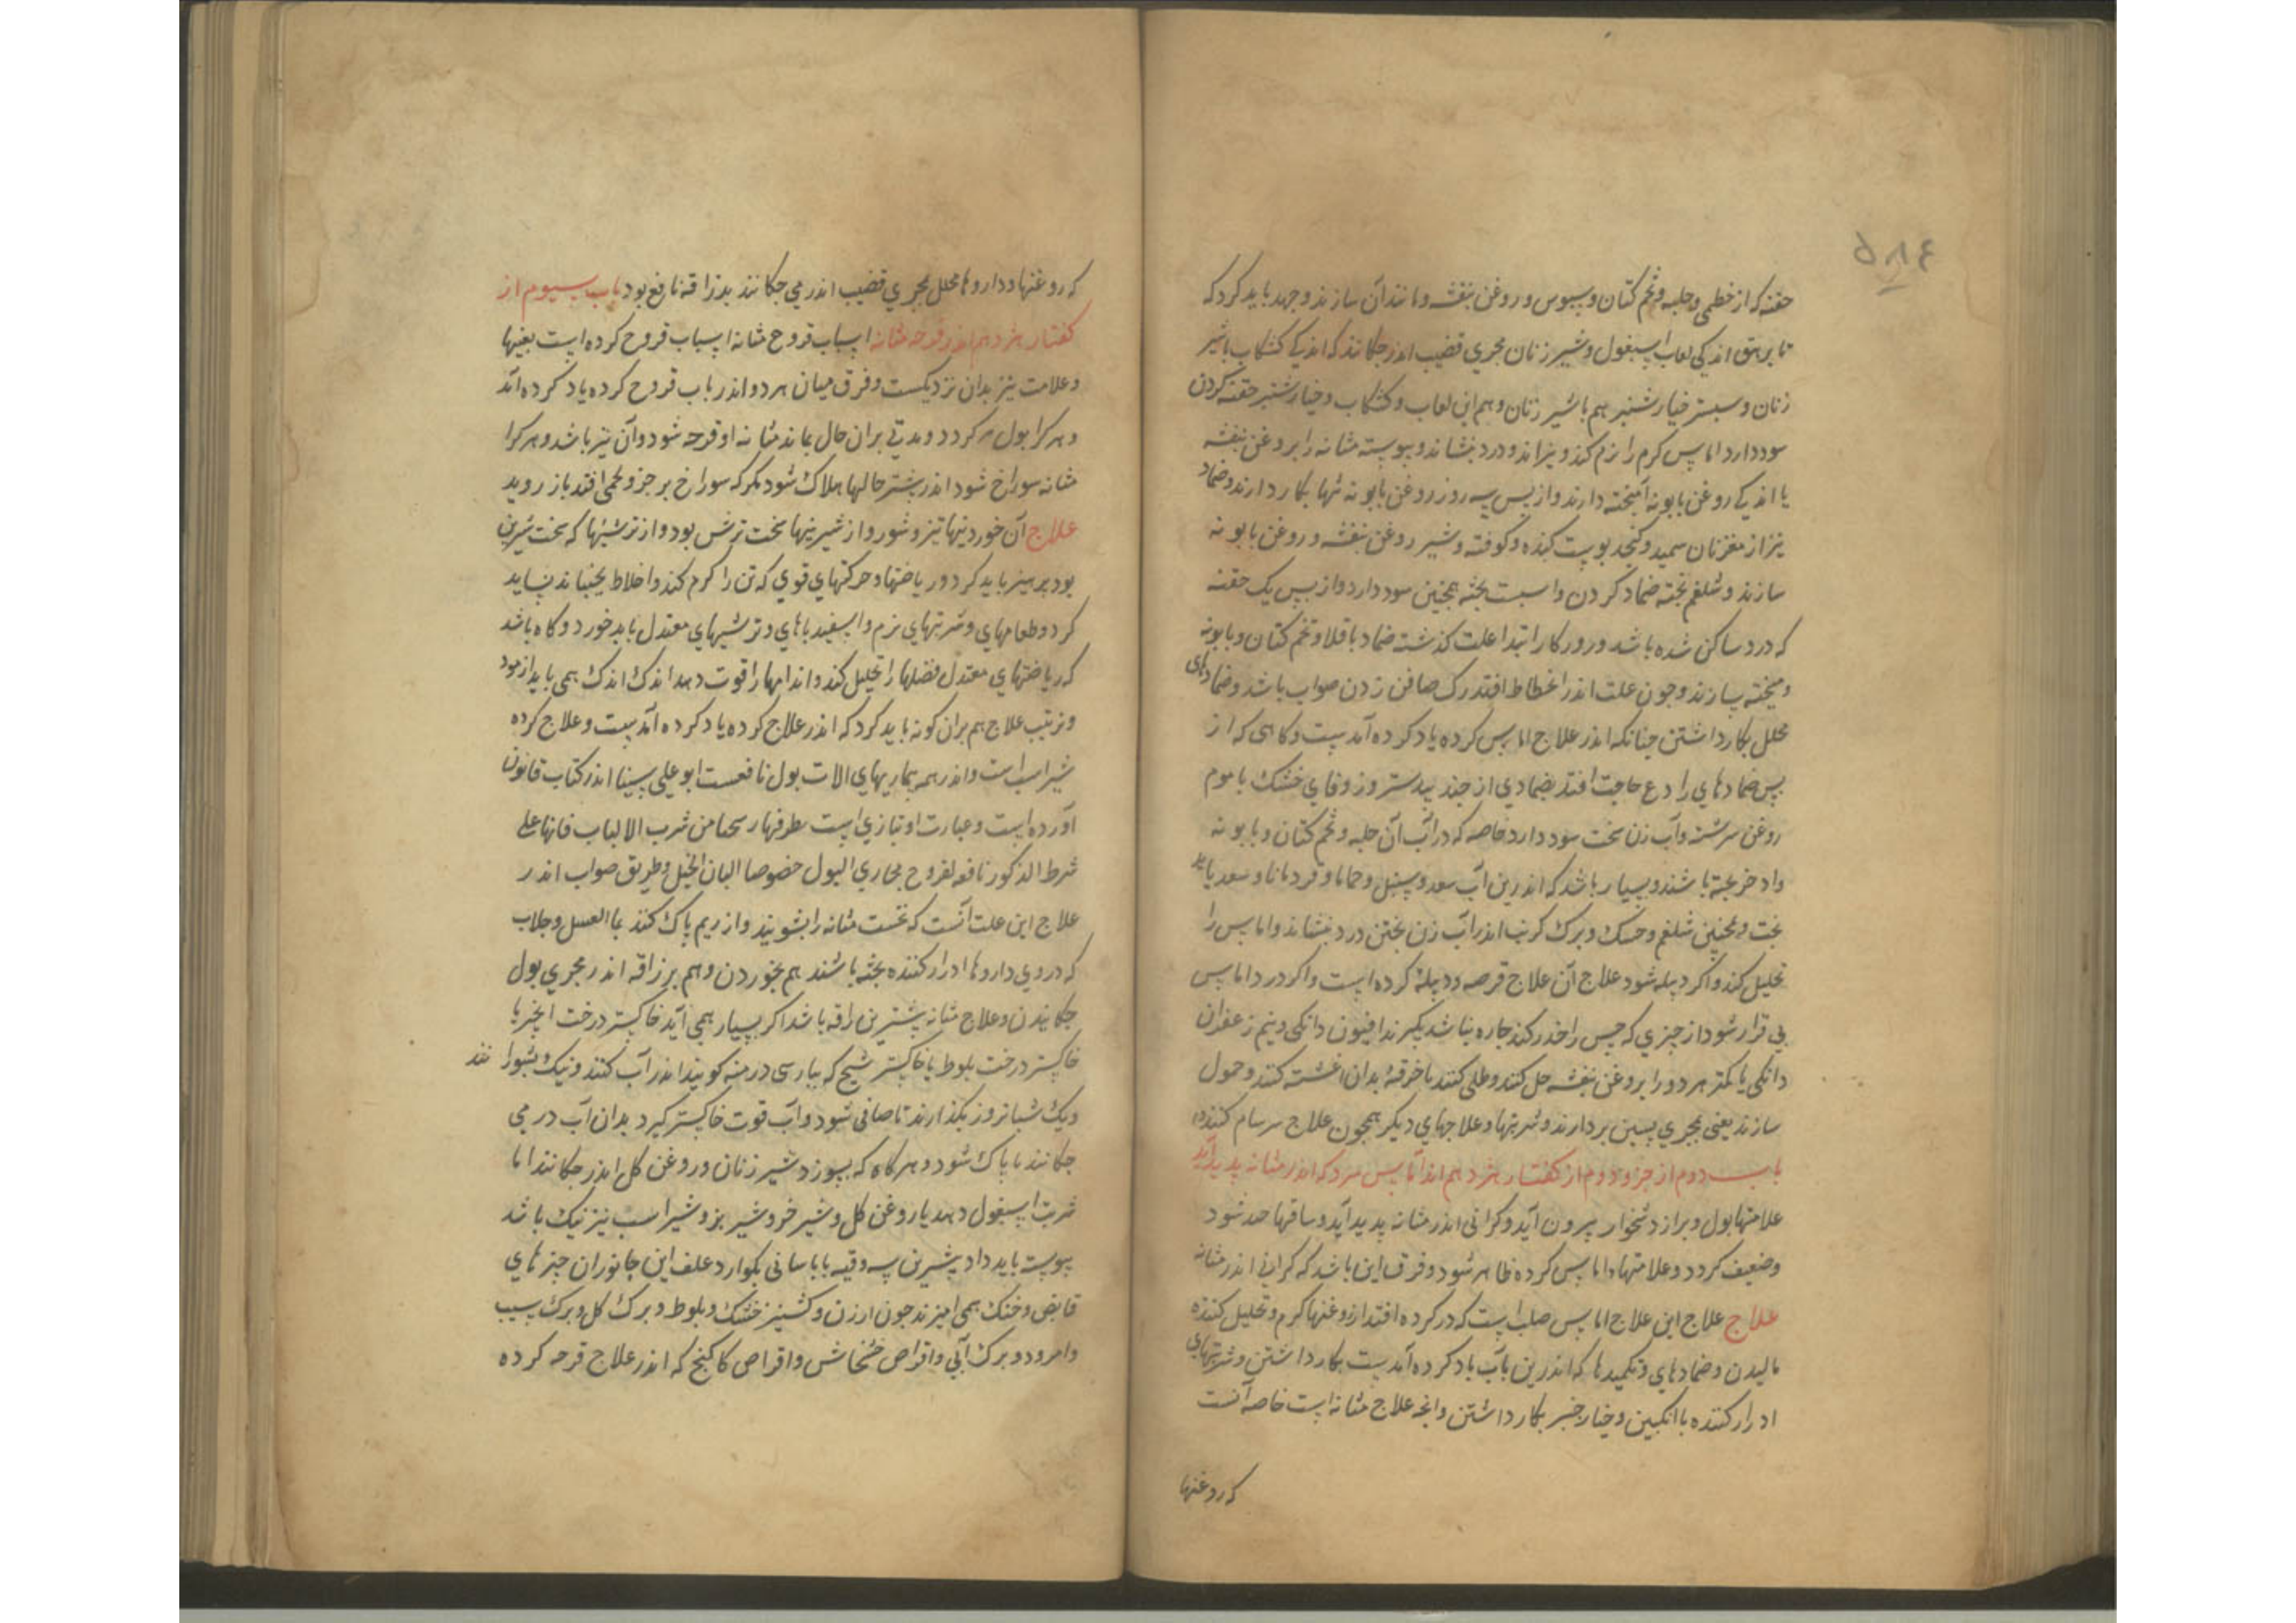 ۵۸۴
حقنه که از خطمی و حلبه و تخم کتان و سبوس و روغن بنفشه و مانند آن سازند و جهد باید کرد که
اندکی لعاب اسبغول و شیر زنان بمجری قضیب اندر جکانند که اندکی کشکاب با شیر
زنان و خیار شنبر هم با شیر زنان و هم این لعاب و کشکاب و خیار شنبر حقنه کردن
سود دارد اماس کرم را نرم کند و بزاند و درد بنشاند و پیوسته مثانه را بروغن بنفشه
با اندکی روغن بابونه آمیخته دارند و از پس سه روز روغن بابونه تنها بکار دارند و ضماد
نیز از مغز نان سمید و کنجد بوست کنده و کوفته و شیر و روغن بنفشه و روغن بابونه
سازند و شلغم پخته ضماد کردن و اسبست پخته همجنین سود دارد و از پس یک حقنه
که درد ساکن شده باشد و روزکار ابتدا علت کذشته ضماد باقلا و تخم کتان و بابونه
و میخته بسازند و جون علت اندر انحطاط افتد رک صافن زدن صواب باشد و ضمادهای
محلل بکار داشتن جنانکه اندر علاج اماس کرده یاد کرده آمدست و کاهی که از
پس ضمادهای رادع حاجت افتد بضمادی از جند بیدستر و زوفای خشک با موم
روغن سرشته و آب زن سخت سود دارد خاصه که در آب آن حلبه و تخم کتان و بابونه
و اذخر پخته باشند و بسیار باشد که اندرین آب سعد و سنبل و حماما و قردمانا و سعد باید
پخت و همجنین شلغم و حسک و برک کرنب اندر آب زن پختن درد بنشاند و اماس را
تحلیل کند و اکر دبیله شود علاج آن علاج قرحه و دبیله کرده است و اکر درد اماس
بی قرار شود از جیزی که حس را خدر کند جاره نباشد بکیرند افیون دانکی و نیم زعفران
دانکی یا کمتر هر دو را بروغن بنفشه حل کنند و طلی کنند یا خرقه بدان اغشته کنند و حمول
سازند یعنی بمجری پسین بردارند و شربتها و علاجهای دیکر همجون علاج سرسام کنند
باب دوم از جزو دوم از کفتار هزدهم اندر آماس سرد که اندر مثانه پدید آید
علامتها بول و براز دشخوار بیرون آید و کرانی اندر مثانه پدید آید و ساقها شود
و ضعیف کردد و علامتها اماس کرده ظاهر شود و فرق این باشد که کرانی اندر مثانه
علاج علاج این علاج اماس صلب است که در کرده افتد از روغنها کرم و تحلیل کننده
مالیدن و ضمادهای و تکمیدها که اندرین باب یاد کرده آمدست بکار داشتن و شربتهای
ادرار کننده با انکبین و خیارجنبر بکار داشتن و انجه علاج مثانه است خاصه آنست
که روغنها
که روغنها و داروها محلل بمجری قضیب اندر می جکانند بزراقه نافع بود باب سیوم از
کفتار هزدهم اندر قرحه مثانه اسباب قروح مثانه اسباب قروح کرده است بعینها
و علامت نیز بدان نزدیکست و فرق میان هر دو اندر باب قروح کرده یاد کرده آمد
و هرکرا بول کردد و مدتی بران حال بماند مثانه او قرحه شود و آن نیز باشد و هرکرا
مثانه سوراخ شود اندر بیشتر حالها هلاک شود مکر که سوراخ بر جزو لحمی افتد باز روید
علاج آن خوردنیها تیز و شور و از شیرینیها سخت ترش بود و از ترشیها که سخت شیرین
بود پرهیز باید کرد و ریاضتها و حرکتهای قوی که تن را کرم کند و اخلاط بجنباند نباید
کرد و طعامهای و شربتهای نرم و اسفیدباهای و ترشیهای معتدل باید خورد و کاه باشد
که ریاضتهای معتدل فضلها را تحلیل کند و اندامها را قوت دهد اندک اندک همی باید ازمود
و ترتیب علاج هم بران کونه باید کرد که اندر علاج کرده یاد کرده آمدست و علاج کرده
شیر اسب است و اندر همه بیماریهای الات بول نافعست ابو علی سینا اندر کتاب قانون
آورده است و عبارت او بتازی است من شرب الالبان فانها علی
شرط المذکور نافعه لقروح مجاری البول خصوصا البان الخیل و طریق صواب اندر
علاج این علت آنست که نخست مثانه را بشویند و از ریم پاک کنند بما العسل و جلاب
که در وی داروها ادرار کننده پخته باشند هم بخوردن و هم بزراقه اندر مجری بول
جکانیدن و علاج مثانه بیشترین زراقه باشد اکر بسیار همی آید خاکستر درخت انجیر یا
خاکستر درخت بلوط یا خاکستر شیح که بپارسی درمنه کویند اندر آب کنند و نیک بشورانند
و یک شبانروز بکذارند تا صافی شود و آب قوت خاکستر کیرد بدان آب در می
جکانند تا پاک شود و هرکاه که بسوزد شیر زنان و روغن کل اندر جکانند اما
شربت اسبغول دهند با روغن کل و شیر خر و شیر بز و شیر اسب نیز نیک باشد
پیوسته باید داد بیشترین سه وقیه تا باسانی بکوارد علف این جانوران جیزهای
قابض و خنک همی امیزند جون ارزن و کشنیز خشک و بلوط و برک کل و برک سیب
و امرود و برک آبی و اقراص خشخاش و اقراص کاکنج که اندر علاج قرحه کرده